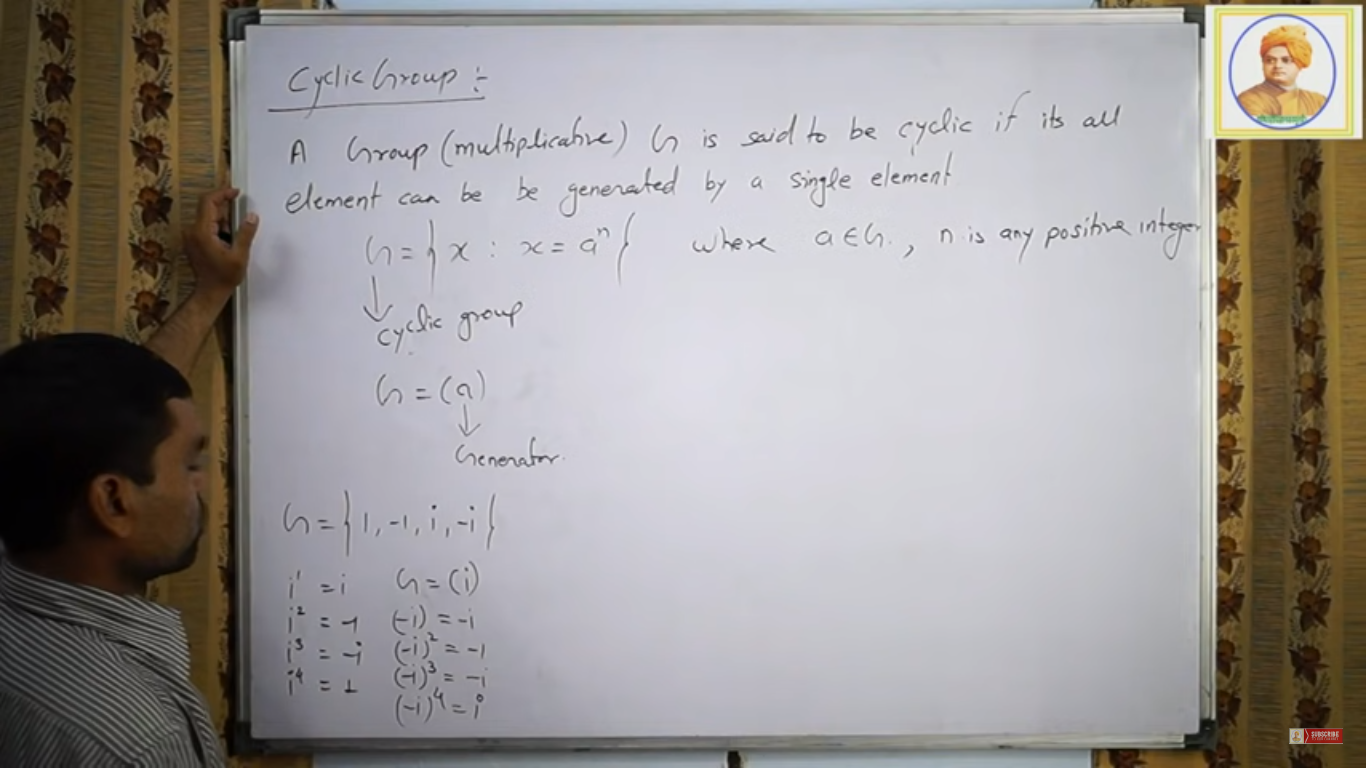 Cyclic Group :-
A Group (multiplicative) G is said to be cyclic if its all
element can be be generated by a single element
G = { x : x = aⁿ } where a ∈ G. , n is any positive integer
↓
cyclic group
G = (a)
↓
Generator.
G = { 1, -1, i, -i }
i¹ = i G = (i)
i² = -1 (-i) = -i
i³ = -i (-i)² = -1
i⁴ = 1 (-i)³ = -i
(-i)⁴ = i
SUBSCRIBE